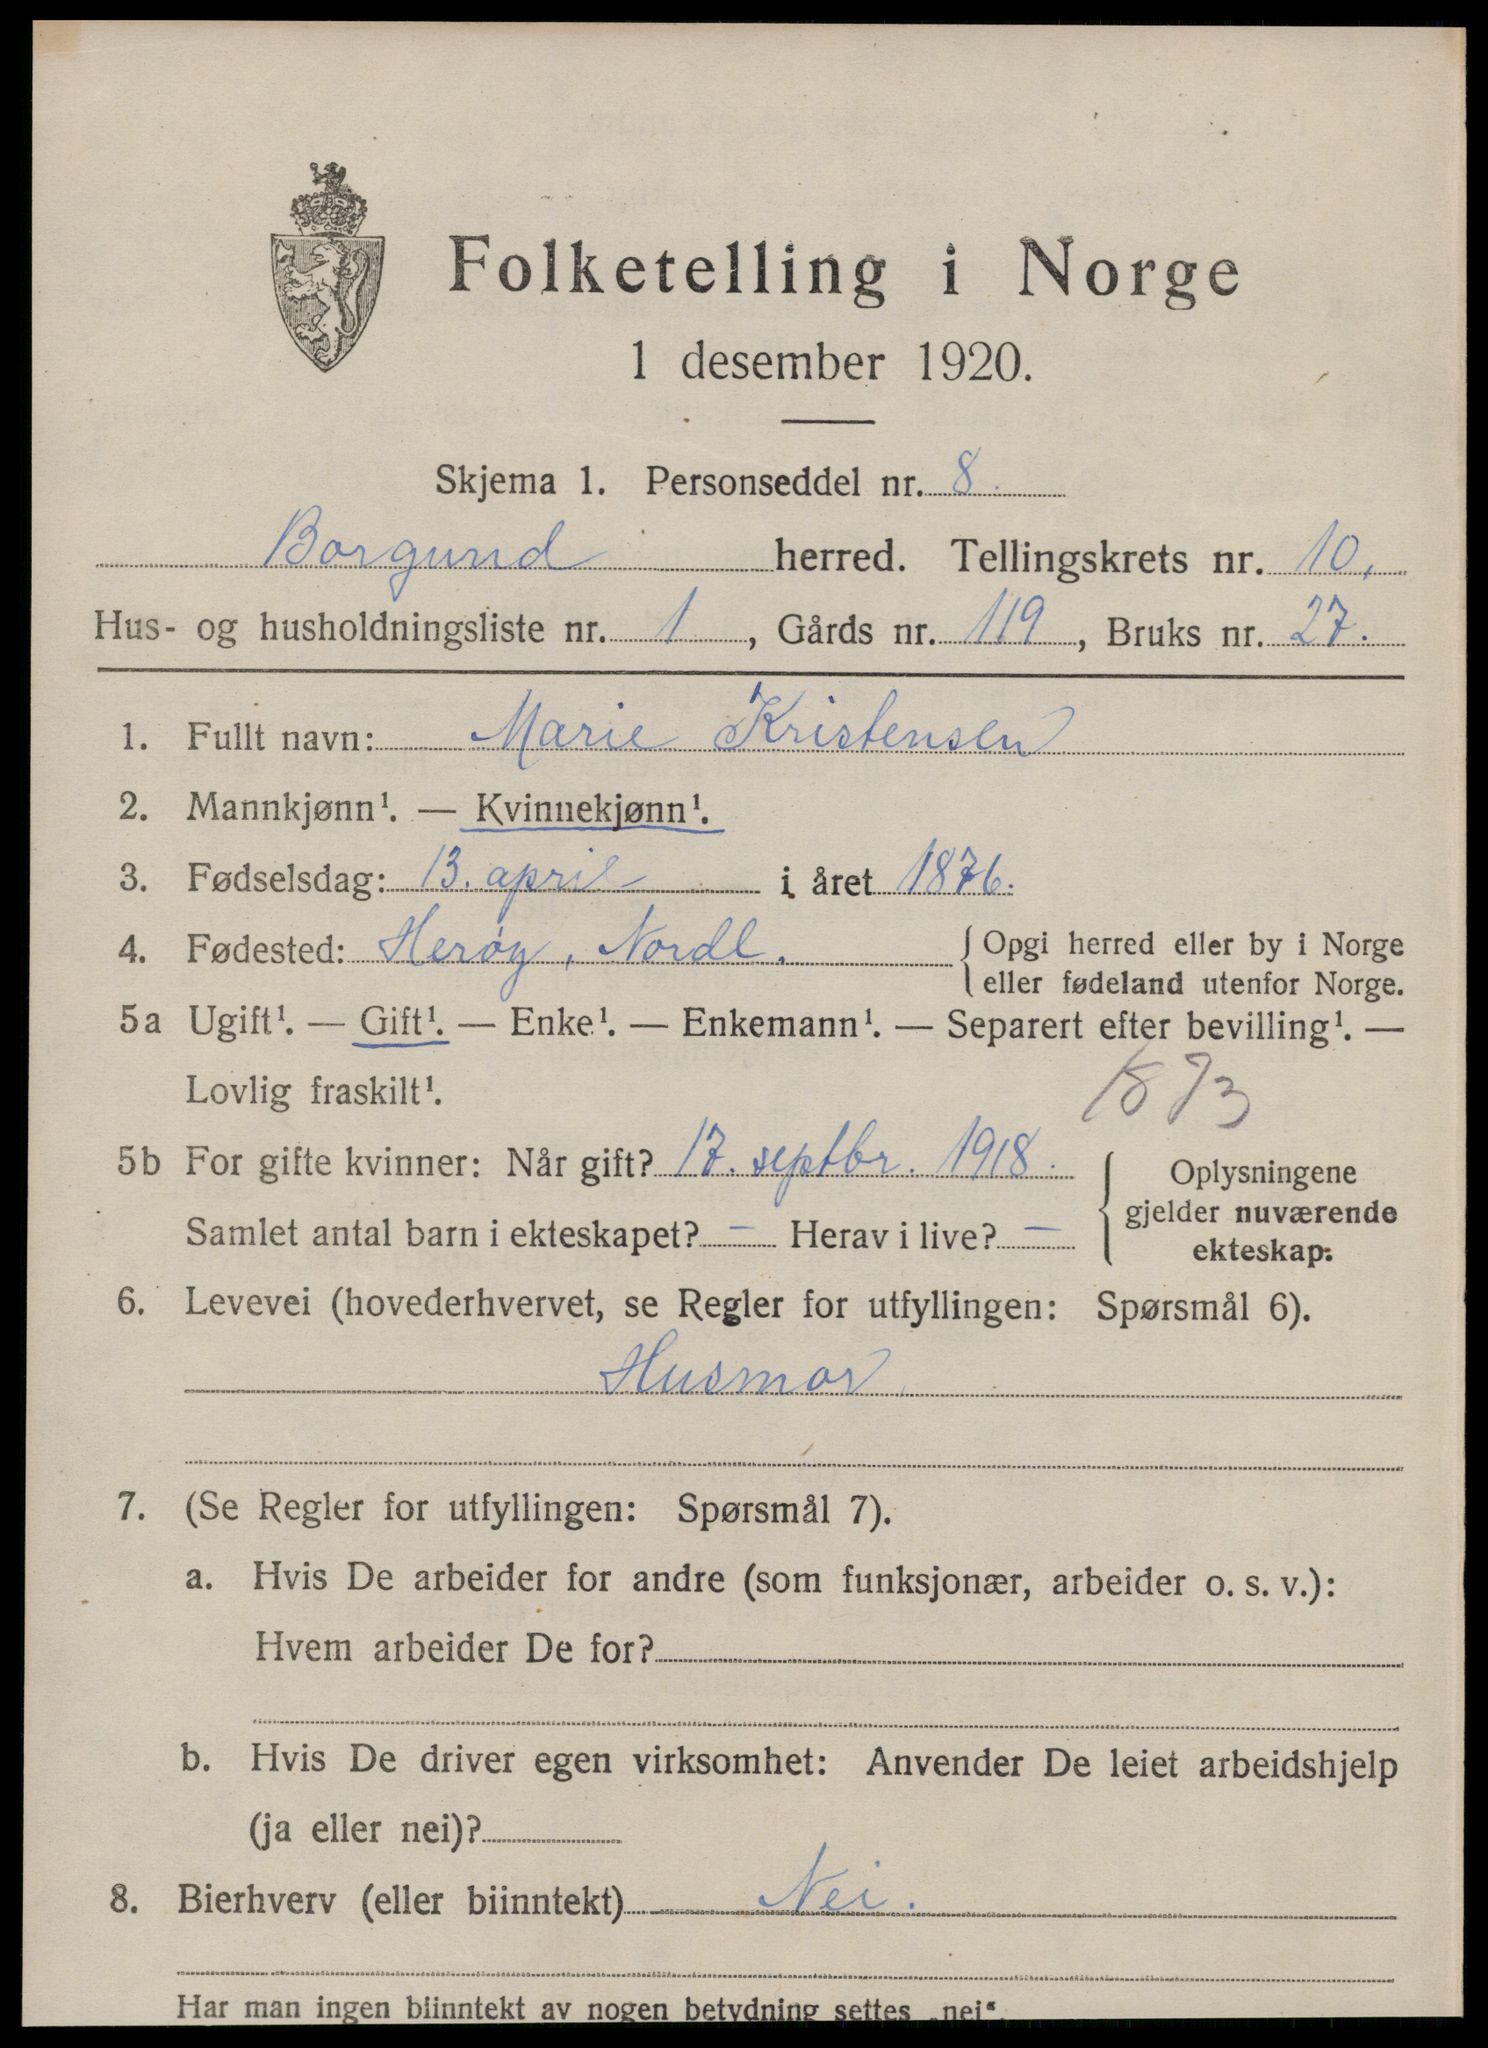 Folketelling i Norge
1 desember 1920.
Skjema 1. Personseddel nr. 8.
Borgund herred. Tellingskrets nr. 10.
Hus- og husholdningsliste nr. 1, Gårds nr. 119, Bruks nr. 27.
1. Fullt navn: Marie Kristensen
2. Mannkjønn¹. — Kvinnekjønn¹.
3. Fødselsdag: 13. april i året 1876.
4. Fødested: Herøy, Nordl. { Opgi herred eller by i Norge
eller fødeland utenfor Norge.
5a Ugift¹. — Gift¹. — Enke¹. — Enkemann¹. — Separert efter bevilling¹. —
Lovlig fraskilt¹.
1873
5b For gifte kvinner: Når gift? 17. septbr. 1918. { Oplysningene
gjelder nuværende
Samlet antal barn i ekteskapet? — Herav i live? —
ekteskap.
6. Levevei (hovederhvervet, se Regler for utfyllingen: Spørsmål 6).
Husmor
7. (Se Regler for utfyllingen: Spørsmål 7).
a. Hvis De arbeider for andre (som funksjonær, arbeider o. s. v.):
Hvem arbeider De for?
b. Hvis De driver egen virksomhet: Anvender De leiet arbeidshjelp
(ja eller nei)?
8. Bierhverv (eller biinntekt) Nei.
Har man ingen biinntekt av nogen betydning settes „nei“.